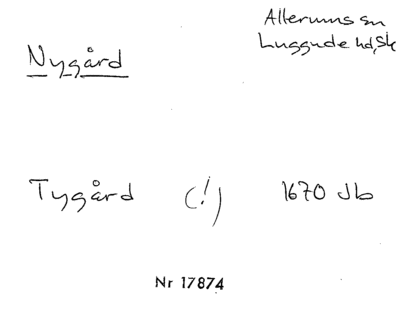 Allerums sn
Luggude hd, Sk
Nygård
Tygård (!) 1670 Jb
Nr 17874